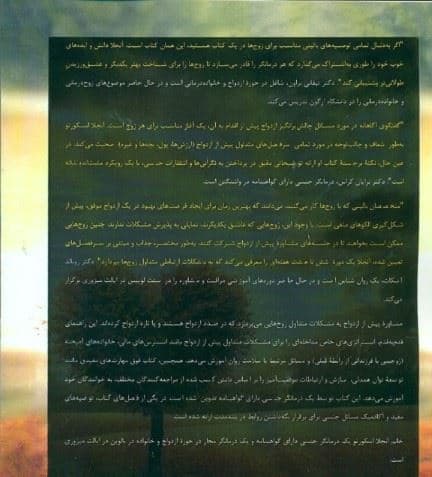 "اگر به‌دنبال تمامی توصیه‌های بالینی مناسب برای زوج‌ها در یک کتاب هستید، این همان کتاب است. آنجلا دانش و ایده‌های
خوب خود را طوری به‌اشتراک می‌گذارد که هر درمانگر را قادر می‌سازد تا زوج‌ها را برای شناخت بهتر یکدیگر و عشق‌ورزیدن
طولانی‌تر پشتیبانی کند". دکتر تیفانی براون، شاغل در حوزهٔ ازدواج و خانواده‌درمانی است و در حال حاضر موضوع‌های زوج‌درمانی
و خانواده‌درمانی را در دانشگاه ارگون تدریس می‌کند.
"گفتگوی آگاهانه در مورد مسائل چالش‌برانگیز ازدواج پیش از اقدام به آن، یک آغاز مناسب برای هر زوج است. آنجلا اسکورتو
به‌طور شفاف و جالب‌توجه در مورد تمامی سرفصل‌های متداول پیش از ازدواج (ارزش‌ها، پول، بچه‌ها و غیره) صحبت می‌کند. در
عین حال، نکتهٔ برجستهٔ کتاب او ارائه توضیحاتی دقیق در پرداختن به نگرانی‌ها و انتظارات جنسی، با یک رویکرد مثبت‌اندیشانه
است". دکتر برایان گراس، درمانگر جنسی دارای گواهینامه در واشنگتن است.
"متخصصان بالینی که با زوج‌ها کار می‌کنند، می‌دانند که بهترین زمان برای ایجاد فرصت‌های بهبود در یک ازدواج موفق، پیش از
شکل‌گیری الگوهای منفی است. با وجود این، زوج‌هایی که عاشق یکدیگرند، تمایلی به پذیرش مشکلات ندارند. چنین زوج‌هایی
ممکن است بخواهند تا در جلسه‌های مشاورهٔ پیش از ازدواج شرکت کنند. به‌طور مختصر، جذاب و مبتنی بر سرفصل‌های
تعیین شده، آنجلا یک دورهٔ شش تا هشت هفته‌ای را معرفی می‌کند که به مشکلات ارتباطی متداول زوج‌ها بپردازد". دکتر رونالد
اسکات، یک روان شناس است و در حال حاضر دوره‌های آموزشی مراقبت و مشاوره را در سنت لوییس در ایالت میزوری برگزار
می‌کند.
مشاورهٔ پیش از ازدواج به مشکلات متداول زوج‌هایی می‌پردازد که در صدد ازدواج هستند و یا تازه ازدواج کرده‌اند. این راهنمای
قدم‌به‌قدم استراتژی‌های خاص مداخله‌ای را برای مشکلات متداول پیش از ازدواج مانند استرس‌های مالی، خانواده‌های آمیخته
(زوجینی با فرزندانی از رابطهٔ قبلی) و مسائل مرتبط با سلامت روان آموزش می‌دهد. همچنین، کتاب فوق مهارت‌های مفیدی مانند
توسعهٔ توان همدلی، سازش و ارتباطات موفقیت‌آمیز را بر اساس دانش کسب شده از مراجعه‌کنندگان مختلف، به خوانندگان خود
آموزش می‌دهد. این کتاب توسط یک درمانگر جنسی دارای گواهینامه تدوین شده است. در یکی از فصل‌های کتاب، توصیه‌های
مفید و آکادمیک مسائل جنسی برای برقرار نگه‌داشتن روابط در بلندمدت ارائه شده است.
خانم آنجلا اسکورتو یک درمانگر جنسی دارای گواهینامه و یک درمانگر مجاز در حوزهٔ ازدواج و خانواده در بالوین در ایالت میزوری
است.